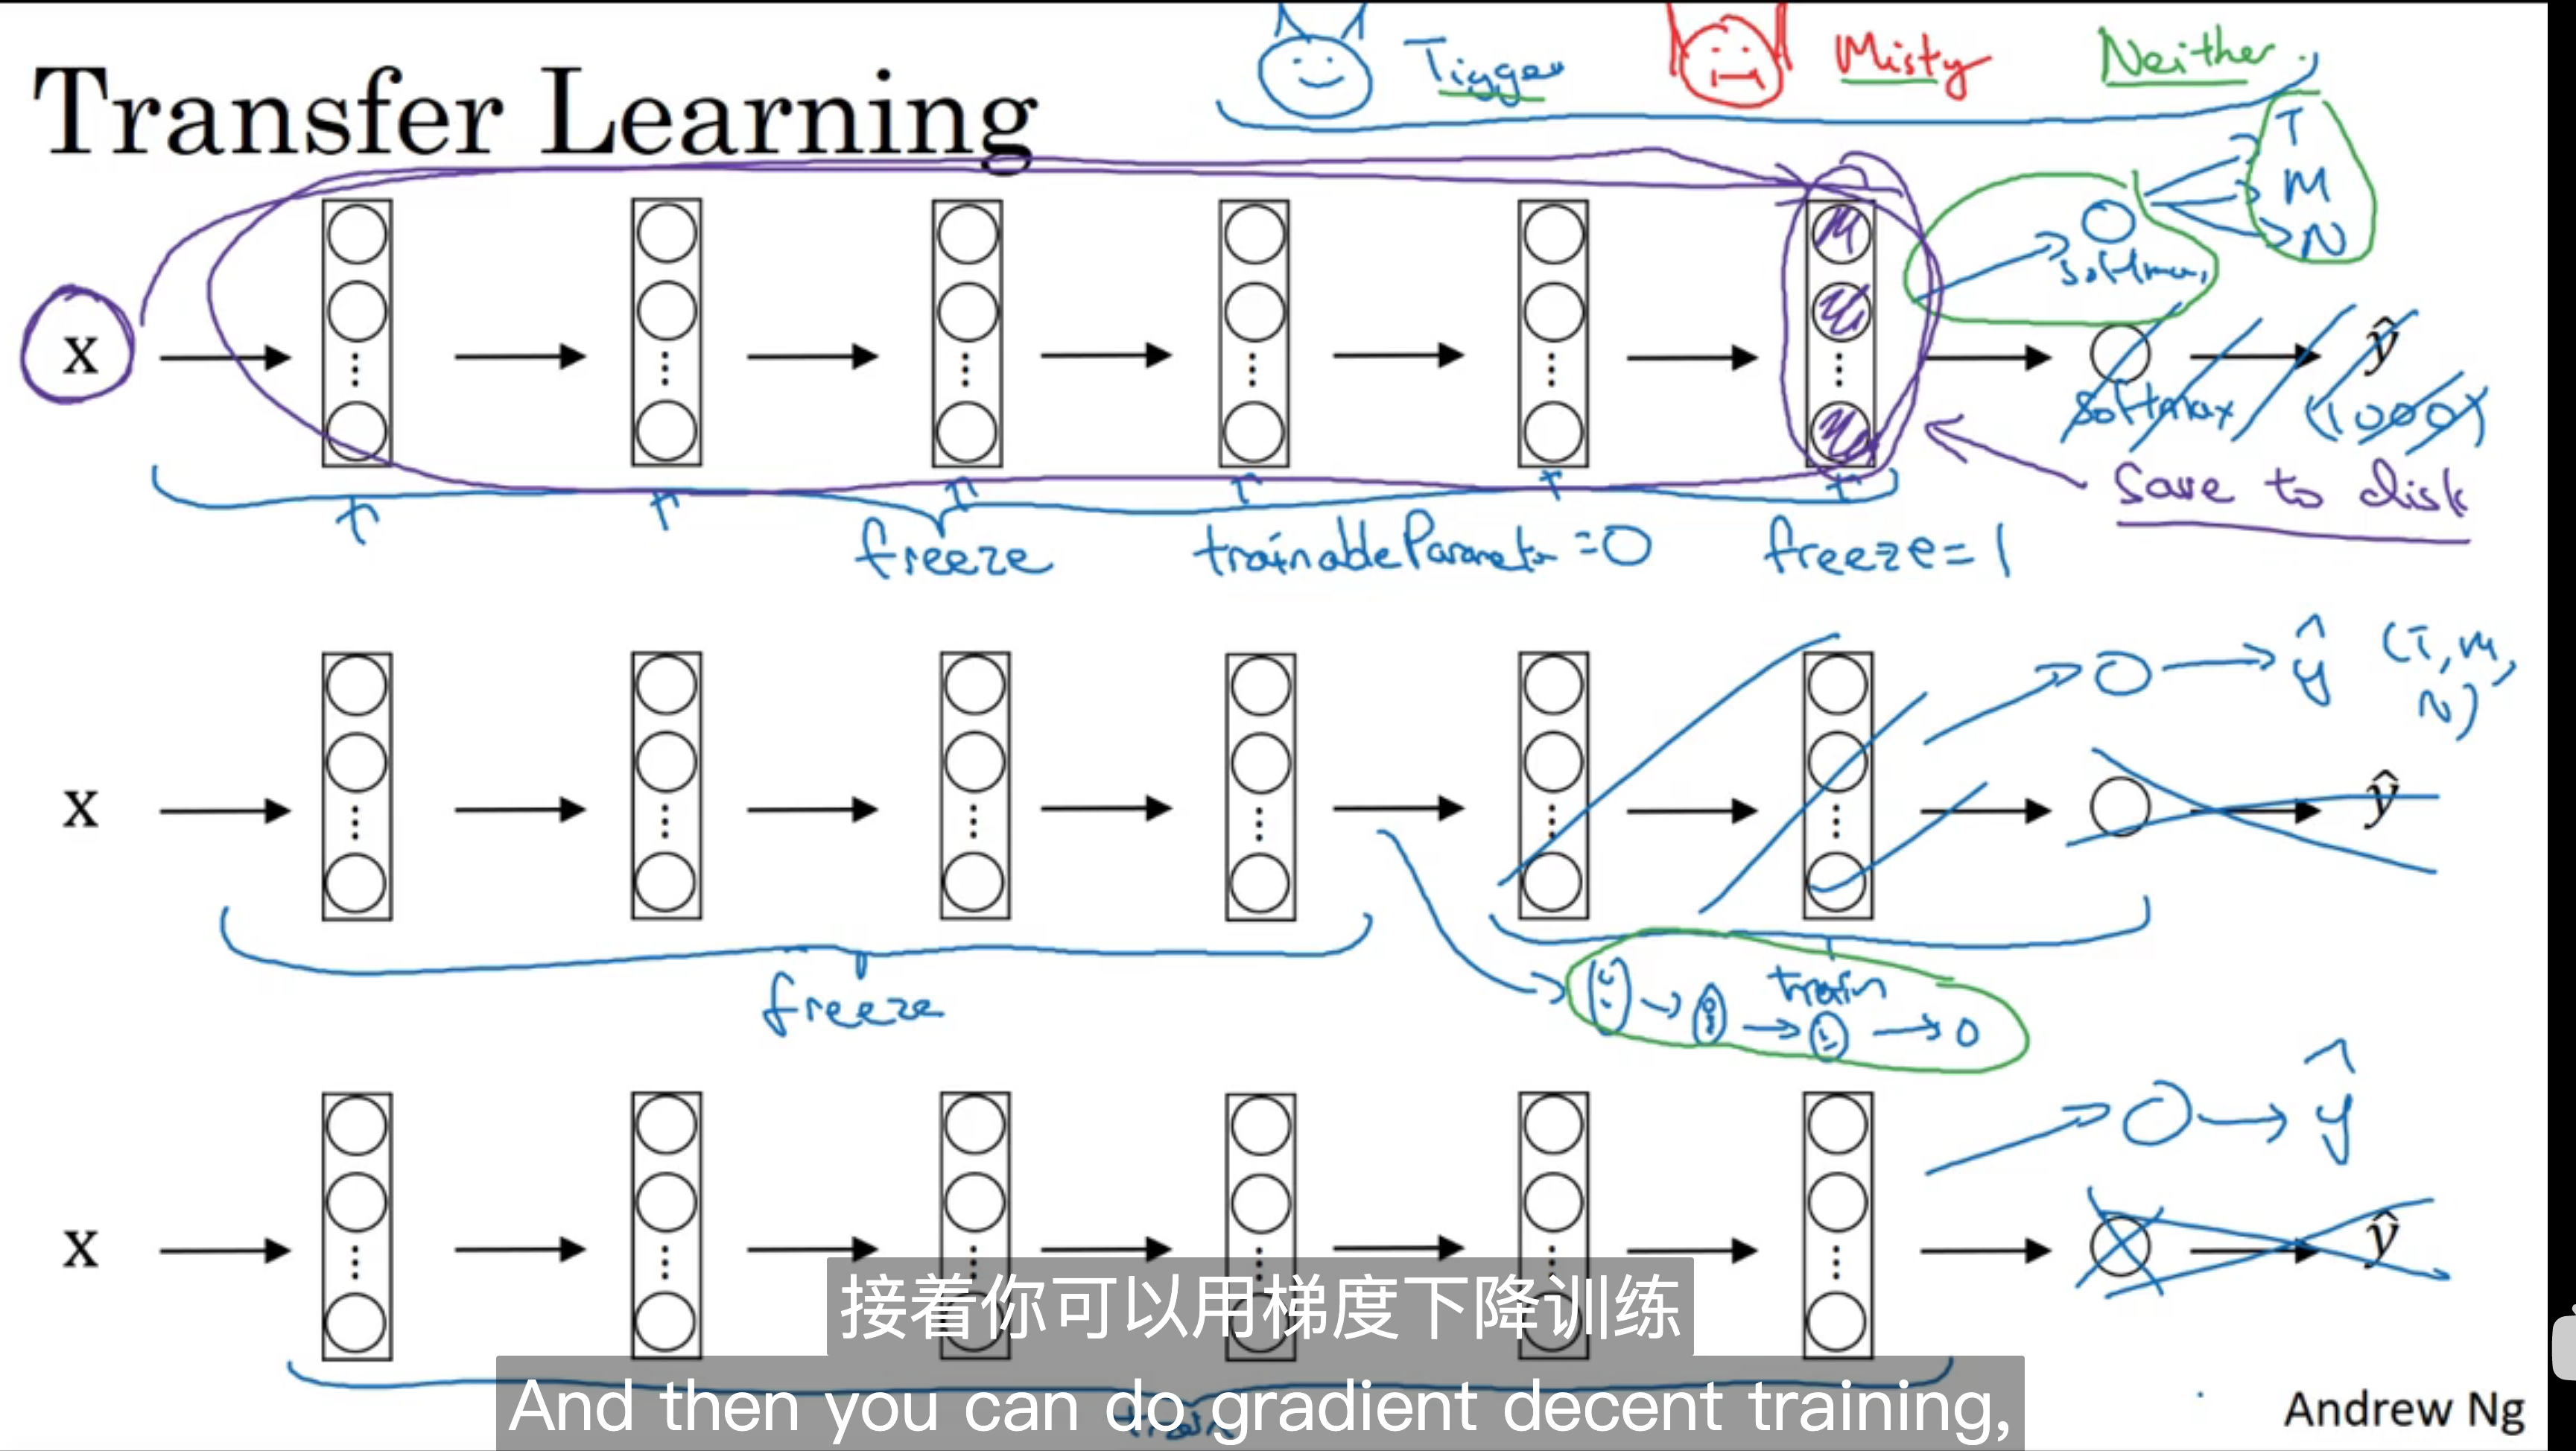 Transfer Learning
Tigger Misty Neither
T
M
N
softmax
x
ŷ
softmax (1000)
Save to disk
freeze trainableParameter = 0 freeze = 1
ŷ (T, M,
N)
x
ŷ
freeze
train
ŷ
x
ŷ
接着你可以用梯度下降训练
And then you can do gradient decent training,
train
Andrew Ng